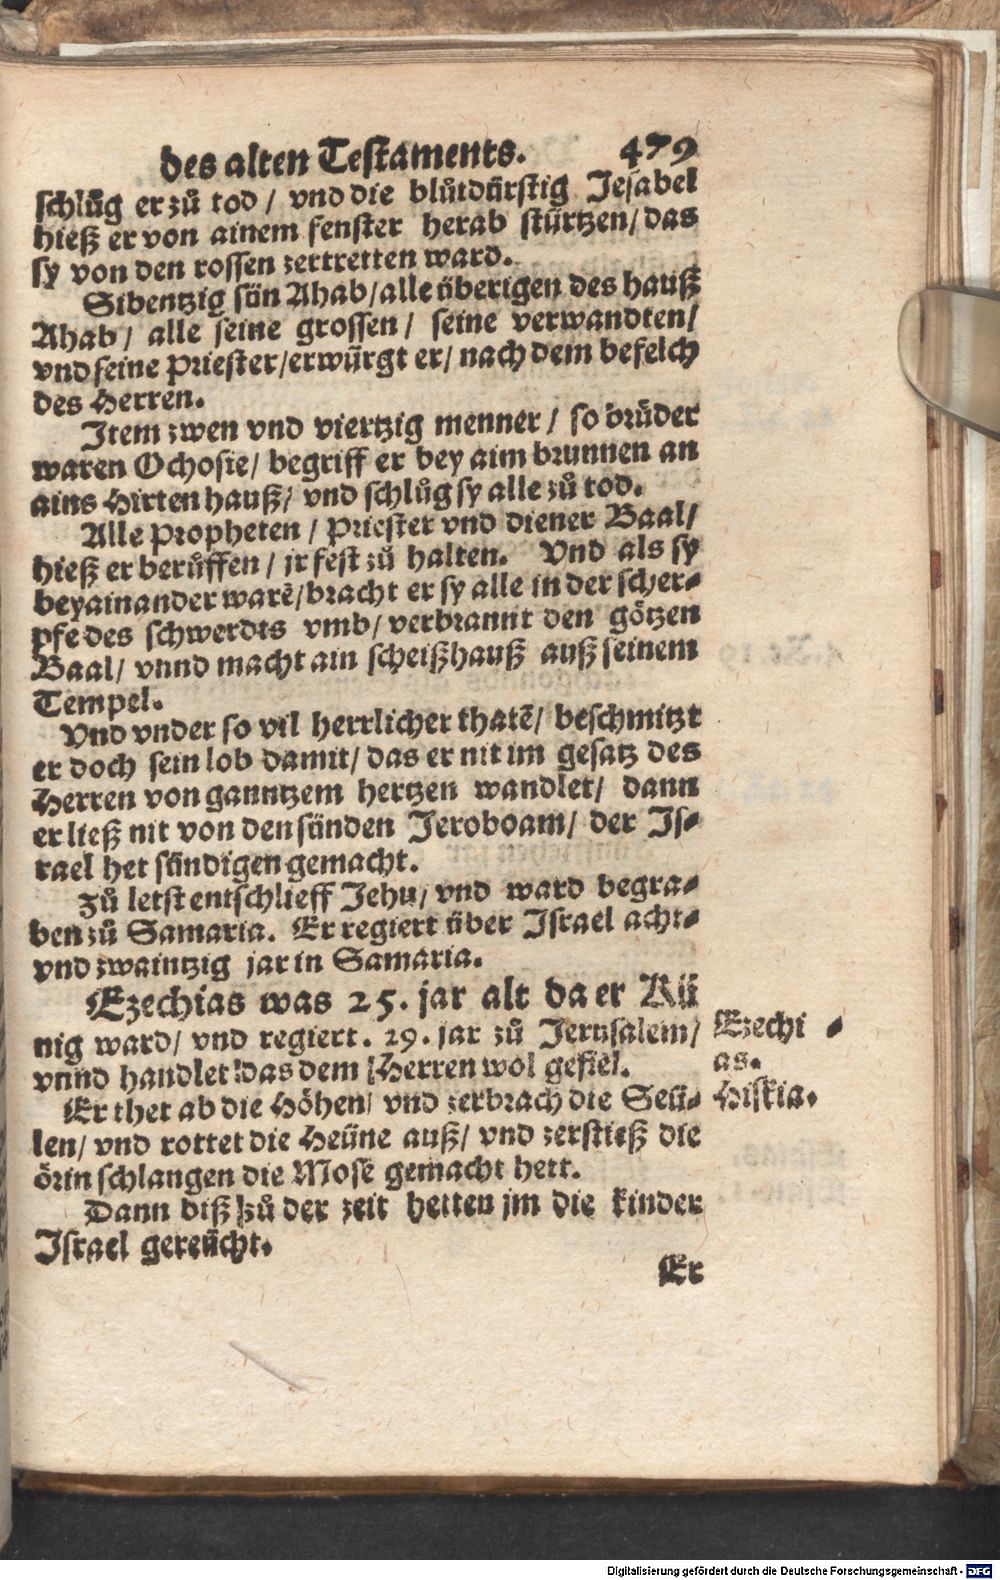 des alten Testaments. 479
schlůg er zů tod / vnd die blůtdürstig Jesabel
hieß er von ainem fenster herab stürtzen / das
sy von den rossen zertretten ward.
Sibentzig sün Ahab / alle überigen des hauß
Ahab / alle seine grossen / seine verwandten /
vnd seine Priester / erwürgt er / nach dem befelch
des Herren.
Item zwen vnd viertzig menner / so brüder
waren Ochosie / begriff er bey aim brunnen an
ains Hirten hauß / vnd schlůg sy alle zů tod.
Alle Propheten / Priester vnd diener Baal /
hieß er berůffen / jr fest zů halten. Vnd als sy
beyainander warē / bracht er sy alle in der scher⸗
pfe des schwerdts vmb / verbrannt den götzen
Baal / vnnd macht ain scheißhauß auß seinem
Tempel.
Vnd vnder so vil herrlicher thatē / beschmitzt
er doch sein lob damit / das er nit im gesatz des
Herren von ganntzem hertzen wandlet / dann
er ließ nit von den sünden Jeroboam / der Is⸗
rael het sündigen gemacht.
Zů letst entschlieff Jehu / vnd ward begra⸗
ben zů Samaria. Er regiert über Israel acht⸗
vnd zwaintzig jar in Samaria.
Ezechias was 25. jar alt da er Kü
nig ward / vnd regiert. 29. jar zů Jerusalem /
vnnd handlet das dem Herren wol gefiel.
Ezechi⸗
as.
Hiskia.
Er thet ab die Höhen / vnd zerbrach die Seü⸗
len / vnd rottet die Heüne auß / vnd zerstieß die
örin schlangen die Mose gemacht hett.
Dann biß zů der zeit hetten jm die kinder
Israel gereücht.
Er
Digitalisierung gefördert durch die Deutsche Forschungsgemeinschaft - DFG